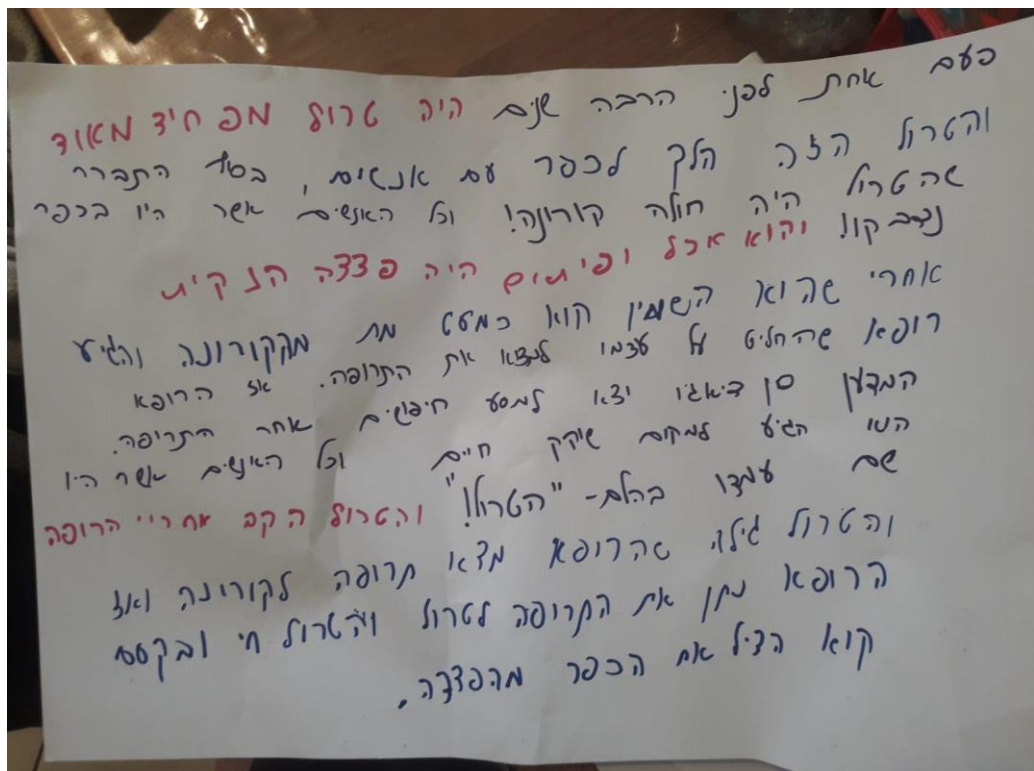 פעם אחת לפני הרבה שנים היה טרול מפחיד מאוד
והטרול הזה הלך לכפר עם אנשים, בסוף התברר
שהטרול היה חולה קורונה! וכל האנשים אשר היו בכפר
נדבקו! והוא אכל ופיתום היה פצצה הנקית
אחרי שהוא הנשומין הוא כמעט מת מקורונה והגיע
רופא שהחליט על עצמו למצא את התרופה. אז הרופא
המדען סן דיאגו יצא למסע חיפושים אחר התריפה.
הוא הגיע למקום שוקק חיים וכל האנשים אשר היו
שם עמדו בהלם- "הטרול!" והטרול הקב אחריי הרופה
והטרול גילה שהרופא מצא תרופה לקורונה ואז
הרופא נתן את התרופה לטרול והטרול חי ובקסם
הוא הציל את הכפר מהפצצה.